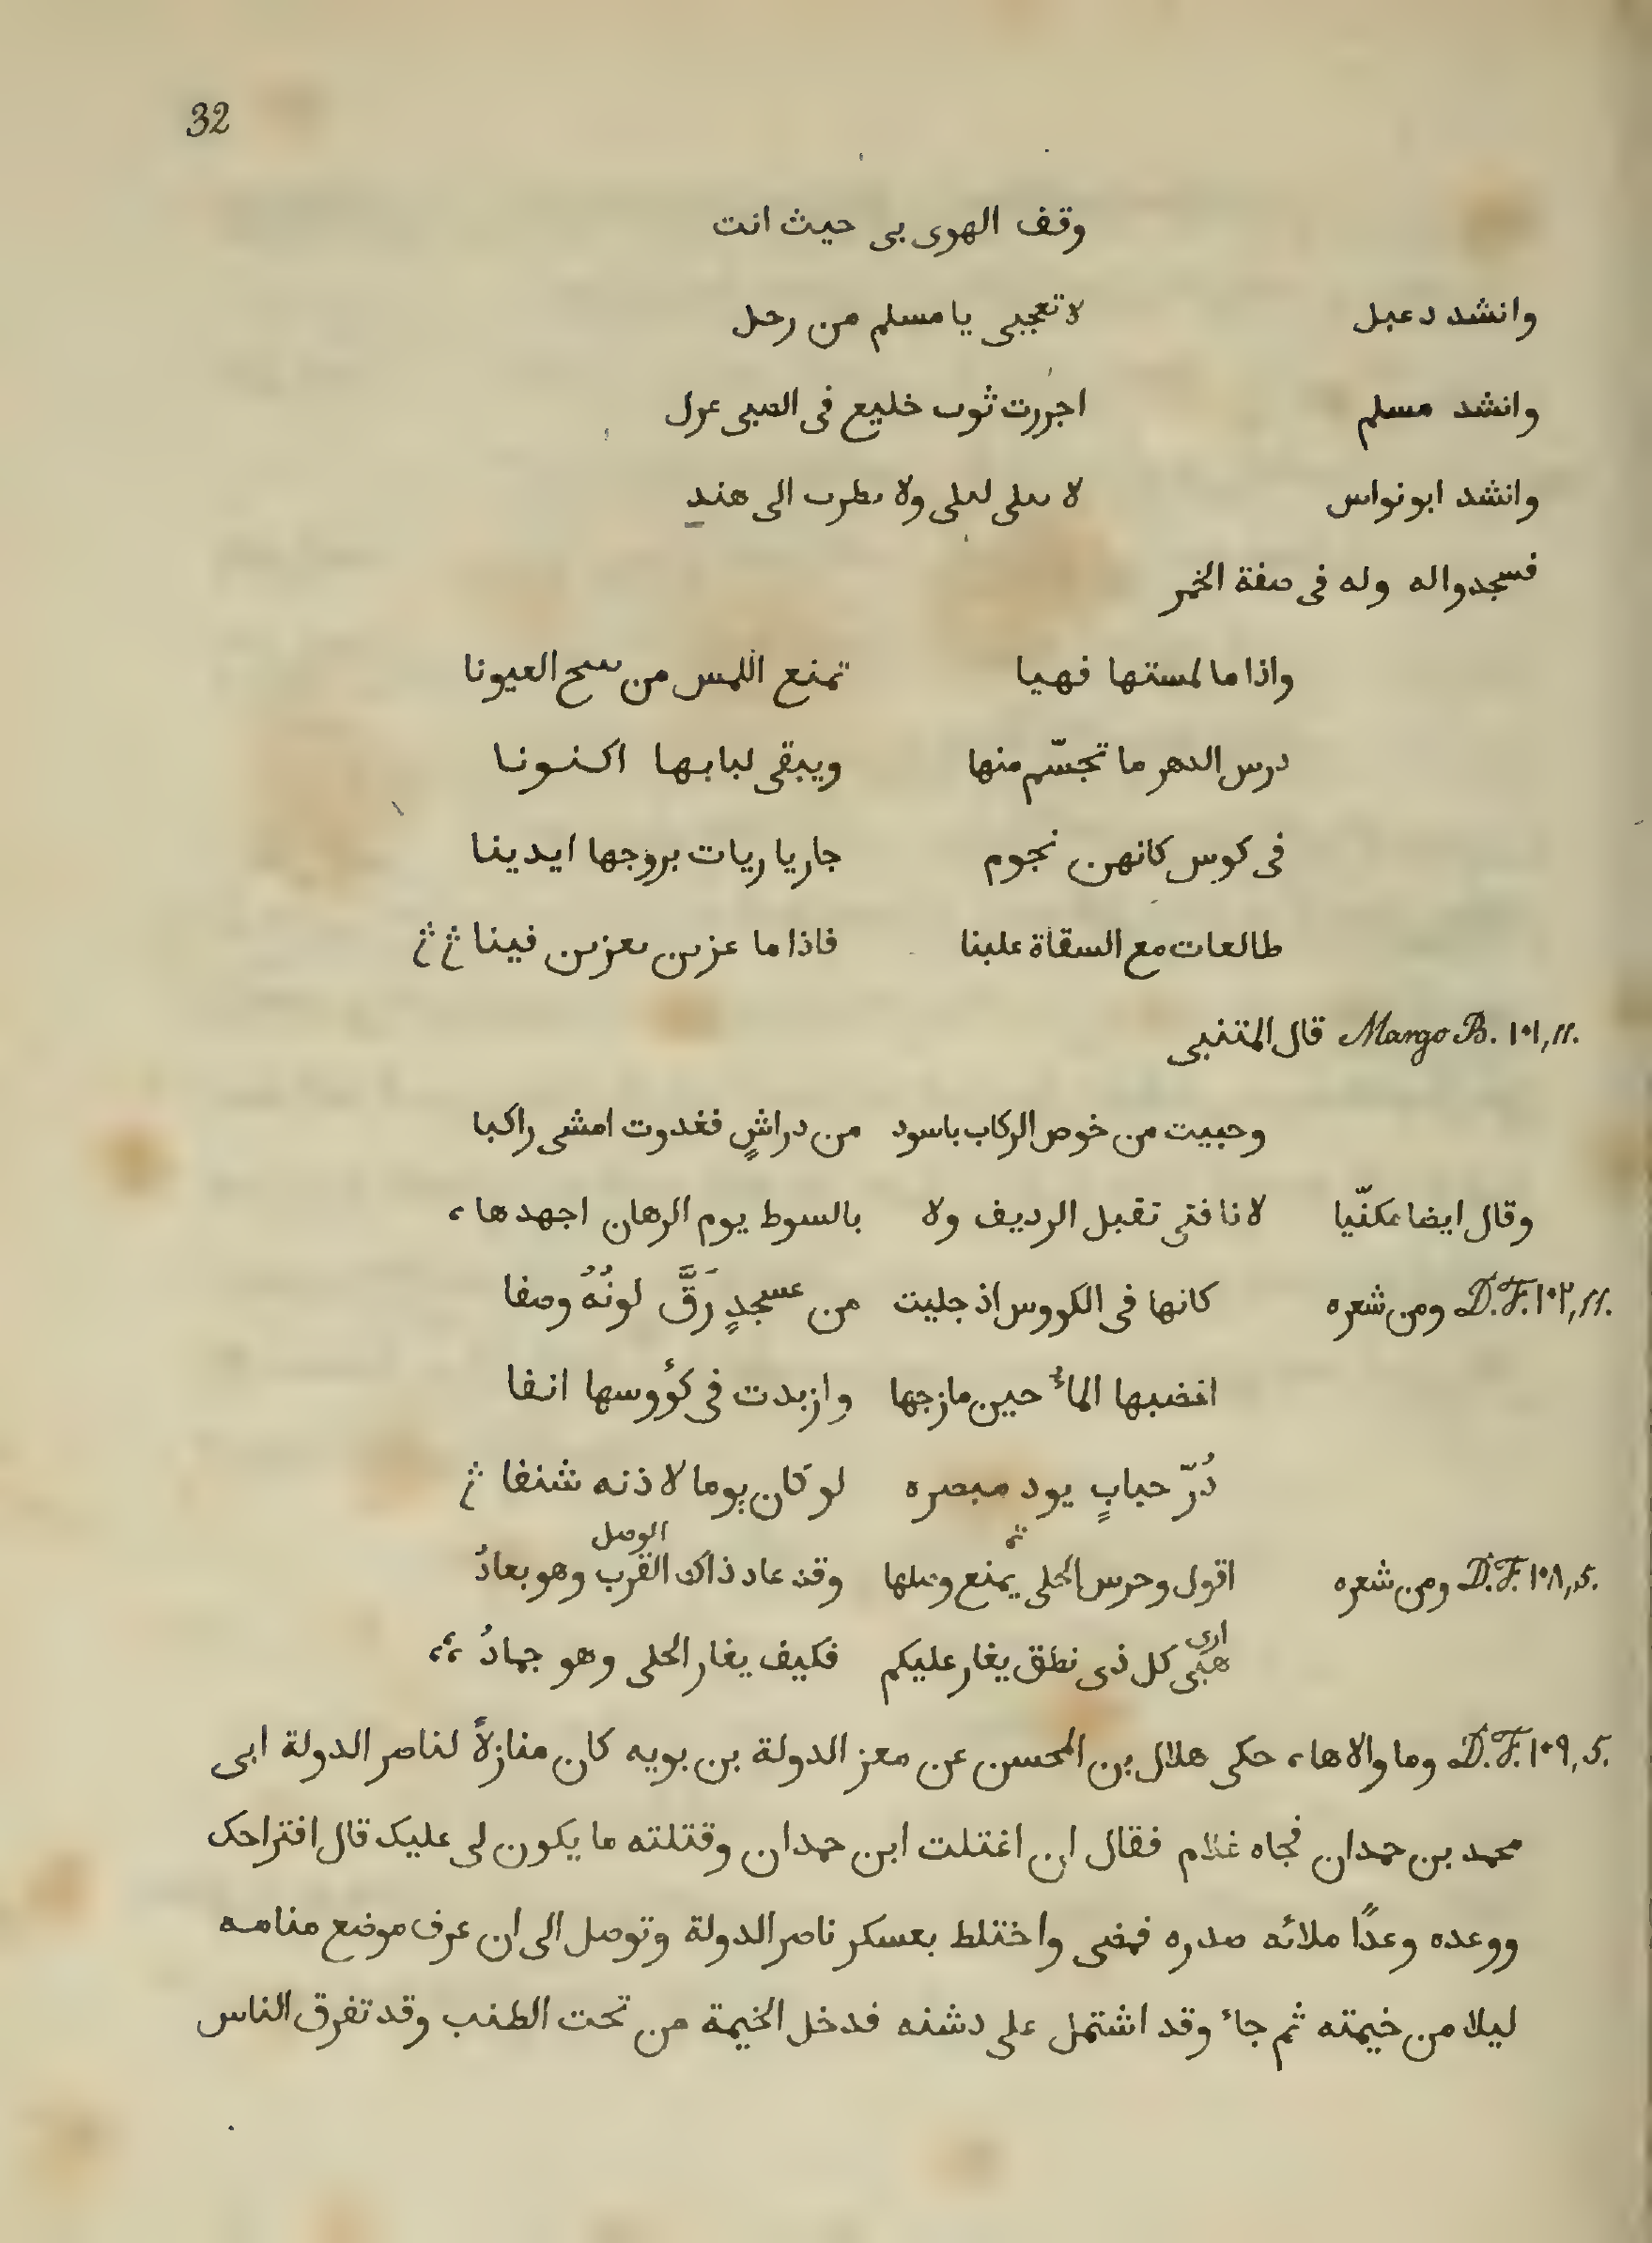 32
وقف الهوى بى حيث انت
وانشد دعبل لا تعجبى يا مسلم من رحل
وانشد مسلم اجررت ثوب خليع فى الصبى عرل
وانشد ابو نواس لا ىىلى لىلى ولا ىطرب الى هند
فسجدوا له وله فى صفة الخمر
واذا ما لمستها فهبا تمنع اللمس من العيونا
درس الدهر ما تجسّم منها ويبقى لبابها اكنونا
فى كوس كانهن نجوم جاريا ريات بروجها ايدينا
طالعات مع السقاة علينا فاذا ما عزىن ىعزىن فينا
Margo B. ١٠١,11. قال المتنبى
وحبيت من خوص الركاب باسود من دراشٍ فغدوت امشى راكبا
وقال ايضا مكنّيا لا نا فتى تقبل الرديف ولا بالسوط يوم الرهان اجهدها،
D.F. ١٠٢,11. ومن شعره كانها فى الكووس اذ جليت من عسجدٍ رَقَّ لونُهُ وصفا
اغضبها المائُ حين مازجها وازبدت فى كؤوسها انفا
دُرّ حبابٍ يود مبصره لو كان يوما لاذنه شنفا
D.F. ١٠٨,5. ومن شعره اقول وحرس الحلى يمنع وصلها وقد عاد ذاك القرب الوصل وهو بعادُ
هبى ارى كل ذى نطق يغار عليكم فكيف يغار الحلى وهو جمادُ ،،
D.F. ١٠٩,5. وما والاها، حكى هلال بن المحسن عن معز الدولة بن بويه كان منازلاً لناصر الدولة ابى
محمد بن حمدان فجاه غلام فقال ان اغتلت ابن حمدان وقتلته ما يكون لى عليك قال اقتراحك
ووعده وعدًا ملائه صدره فمضى واختلط بعسكر ناصر الدولة وتوصل الى ان عرف موضع منامه
ليلا من خيمته ثم جاء وقد اشتمل على دشنه فدخل الخيمة من تحت الطنب وقد تفرق الناس